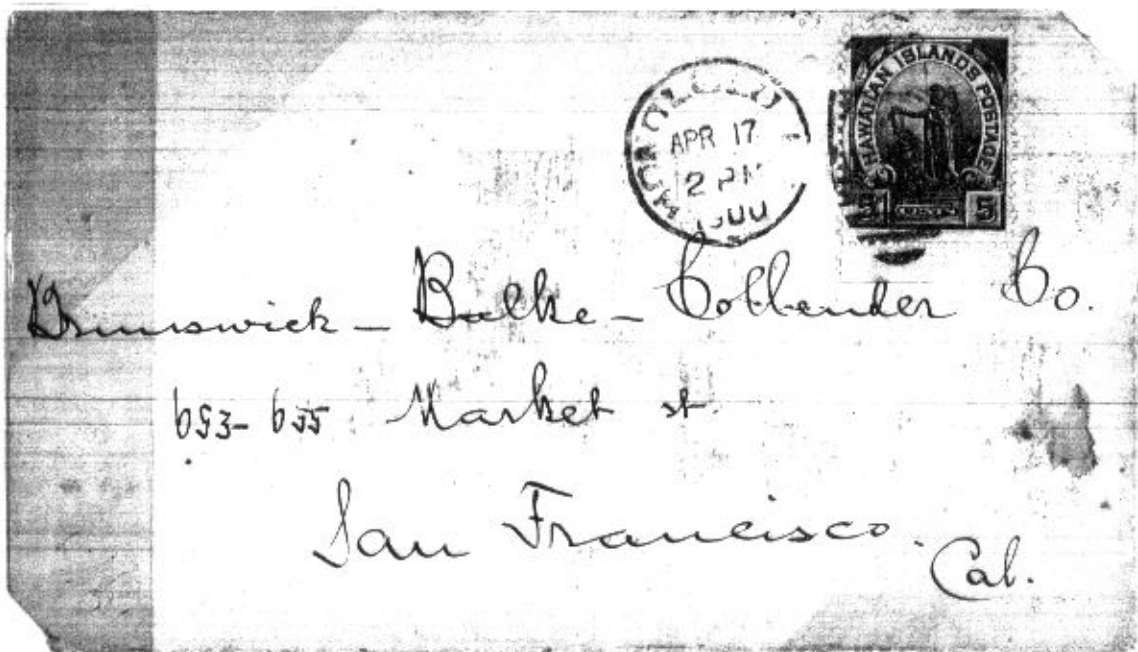 HONOLULU
APR 17
2 PM
1900
HAWAIIAN ISLANDS POSTAGE
5 CENTS 5
Brunswick - Balke - Collender Co.
653-655 Market st
San Francisco.
Cal.